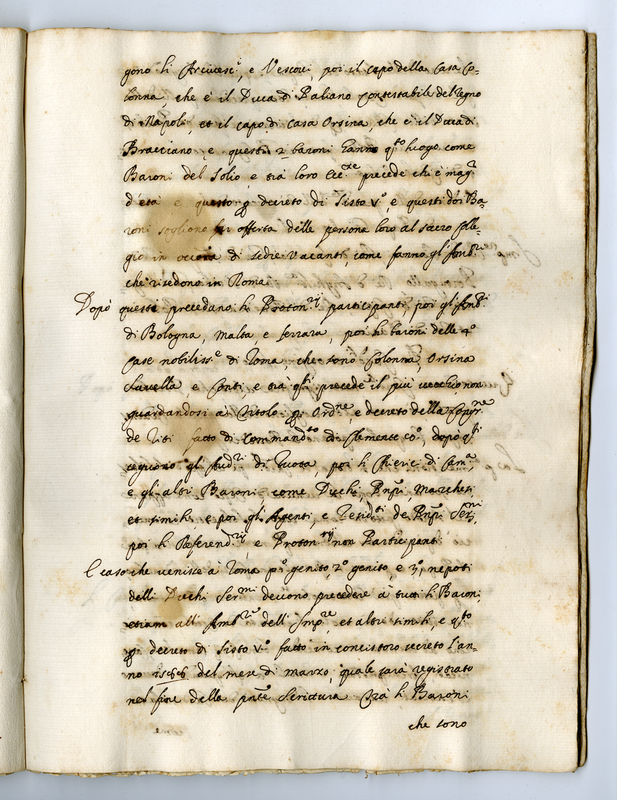 gono li Arciuesci, e Vescoui, poi il capo della Casa Co-
lonna, che è il Duca di Paliano Contestabile del Regno
di Napoli, et il capo di Casa Orsina, che è il Duca di
Bracciano, e questi 2 baroni hanno qsto luogo come
Baroni del Solio, e trà loro Ecc.ze precede chi è magr
d'età e questo p decreto di Sisto Vo, e questi doi Ba-
roni sogliono far offerta delle persone loro al sacro Colle-
gio in occone di sedie Vacanti, come fanno gl'Ambri
che risedono in Roma
Dopò questi precedano li Protonrij participanti, poi gl'Ambri
di Bologna, Malta, e ferrara, poi li baroni delle 4o
Case nobilisse di Roma, che sono Colonna, Orsina
Savella, e Conti, e trà qsti precede il più vecchio, non
guardandosi à Titolo p Ordne, e decreto della Congne
de Riti fatto di Commandto di Clemente 8o, dopò qsti
seguono gl'Audri di Ruota, poi li Chierici di Cama,
e gl'altri Baroni, come Duchi, Pnpi, Marchesi,
et simili, e poi gl'Agenti, e Residti de Pnpi Sermi,
poi li Referendrij, e Protonrij non Participanti.
E caso che venisse à Roma po genito, 2o genito, e 3o, nepoti
delli Duchi Sermi deuono precedere à tutti li Baroni,
etiam all'Ambre dell'Impre, et altri simili, e qsto
p decreto di Sisto Vo fatto in concistoro secreto l'an-
no 1586 del mese di Marzo, quale sarà registrato
nel fine della pnte Scrittura Trà li Baroni
che sono